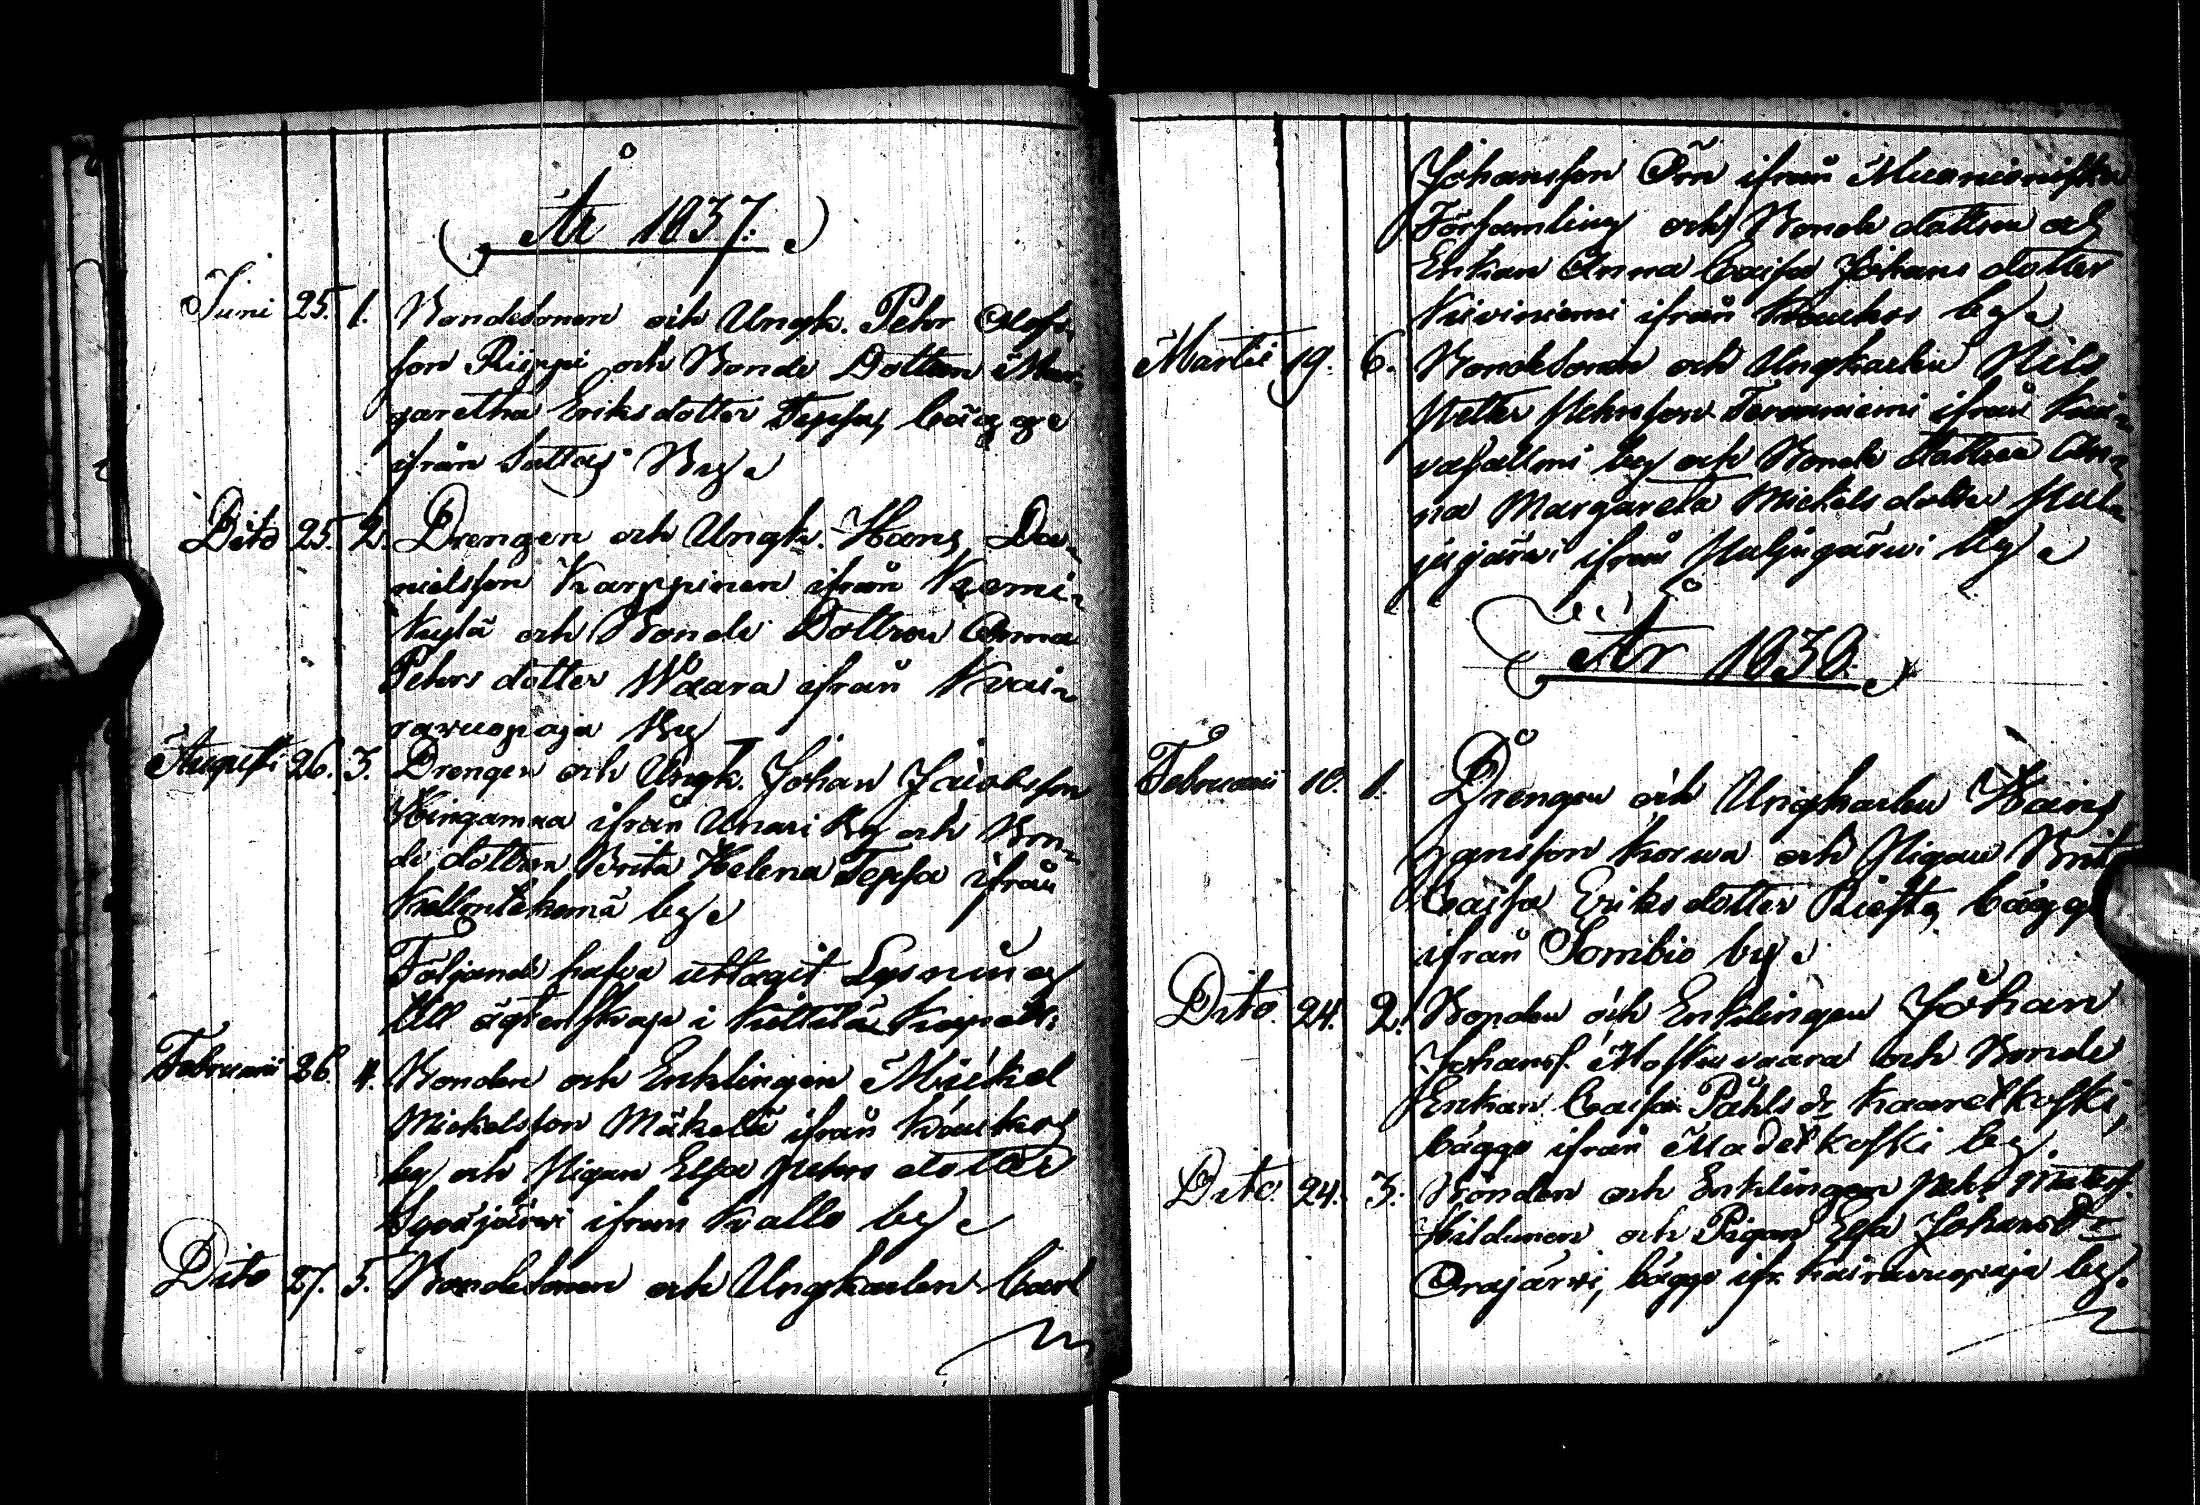 År 1837.
Juni 25. 1. Bondesonen och Ungk. Pehr Olofs-
son Riippi och Bonde Dottren Mar-
garetha Eriksdotter Teppa, bägge
ifrån Sattas By
Dito 25. 2. Drengen och Ungk. Hans Da-
nielsson Karppinen ifrån Kemi-
kylä och Bonde Dottren Anna
Pehrs dotter Waara ifrån Kvai-
ravuopaja By
Augusti 26. 3. Drengen och Ungk. Johan Jacobsson
Hingamaa ifrån Unari By och Bon-
de dottren Brita Helena Teppa ifrån
Kellontekemä by
Följande hafva uttagit Lysning
till ägtenskap i Kittilä Kapell:
Februarii 26. 4. Bonden och Enklingen Mickel
Mickelsson Mäkelä ifrån Kaukos
by och Pigan Elsa Pehrs dotter
Syväjärvi ifrån Kallo by
Dito 27. 5. Bondesonen och Ungkarlen Carl
Johansson Örn ifrån Muonioniska
Församling och Bonde dottren och
Enkan Anna Caisa Johans dotter
Kiviniemi ifrån Kaukos by
Martii 19. 6. Bondesonen och Ungkarlen Nils
Petter Pehrsson ifrån
by och Bonde dottren An-
na Margareta Mickels dotter Pul-
jujärvi ifrån Puljujärvi by
År 1838.
Februarii 10. 1. Drengen och Ungkarlen Hans
Jansson Korva och Pigan Brit
Caisa Eriks dotter Riesta, bägge
ifrån Sombio by
Dito. 24. 2. Bonden och Enklingen Johan
Johanss. och Bonde
Enkan Caisa Påhls dr Kaaretkoski,
bägge ifrån Madetkoski by
Dito. 24. 3. Bonden och Enklingen Pehr
Hildunen och Pigan Elsa Johans dr
Orajärvi, bägge ifr. Kairavuopaja by.